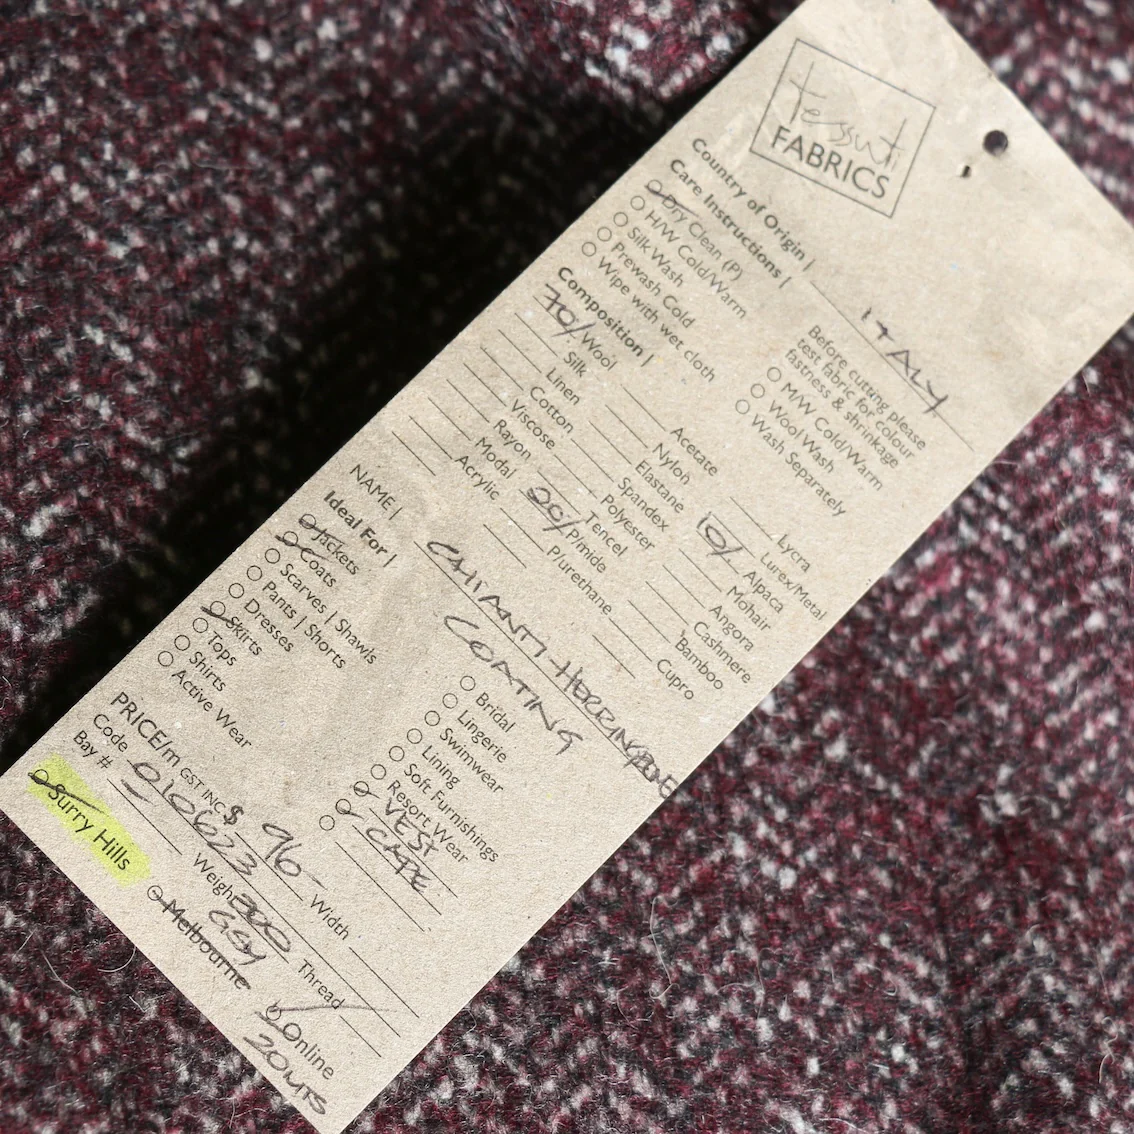 tessuti
FABRICS
Country of Origin | ITALY
Care Instructions |
Dry Clean (P)
H/W Cold/Warm
Silk Wash
Prewash Cold
Wipe with wet cloth
Before cutting please
test fabric for colour
fastness & shrinkage
M/W Cold/Warm
Wool Wash
Wash Separately
Composition |
70/ Wool
Silk
Linen
Cotton
Viscose
Rayon
Modal
Acrylic
Acetate
Nylon
Elastane
Spandex
Polyester
Tencel
20/ P/mide
P/urethane
Lycra
Lurex/Metal
10/ Alpaca
Mohair
Angora
Cashmere
Bamboo
Cupro
NAME | CHIANTI HERRINGBONE
COATING
Ideal For |
Jackets
Coats
Scarves | Shawls
Pants | Shorts
Dresses
Skirts
Tops
Shirts
Active Wear
Bridal
Lingerie
Swimwear
Lining
Soft Furnishings
Resort Wear
VEST
CAPE
PRICE/m GST INC $ 96-
Width
Code 010623
Weigh 300
GSM
Thread
Bay #
Surry Hills
Melbourne
Online
20MTS